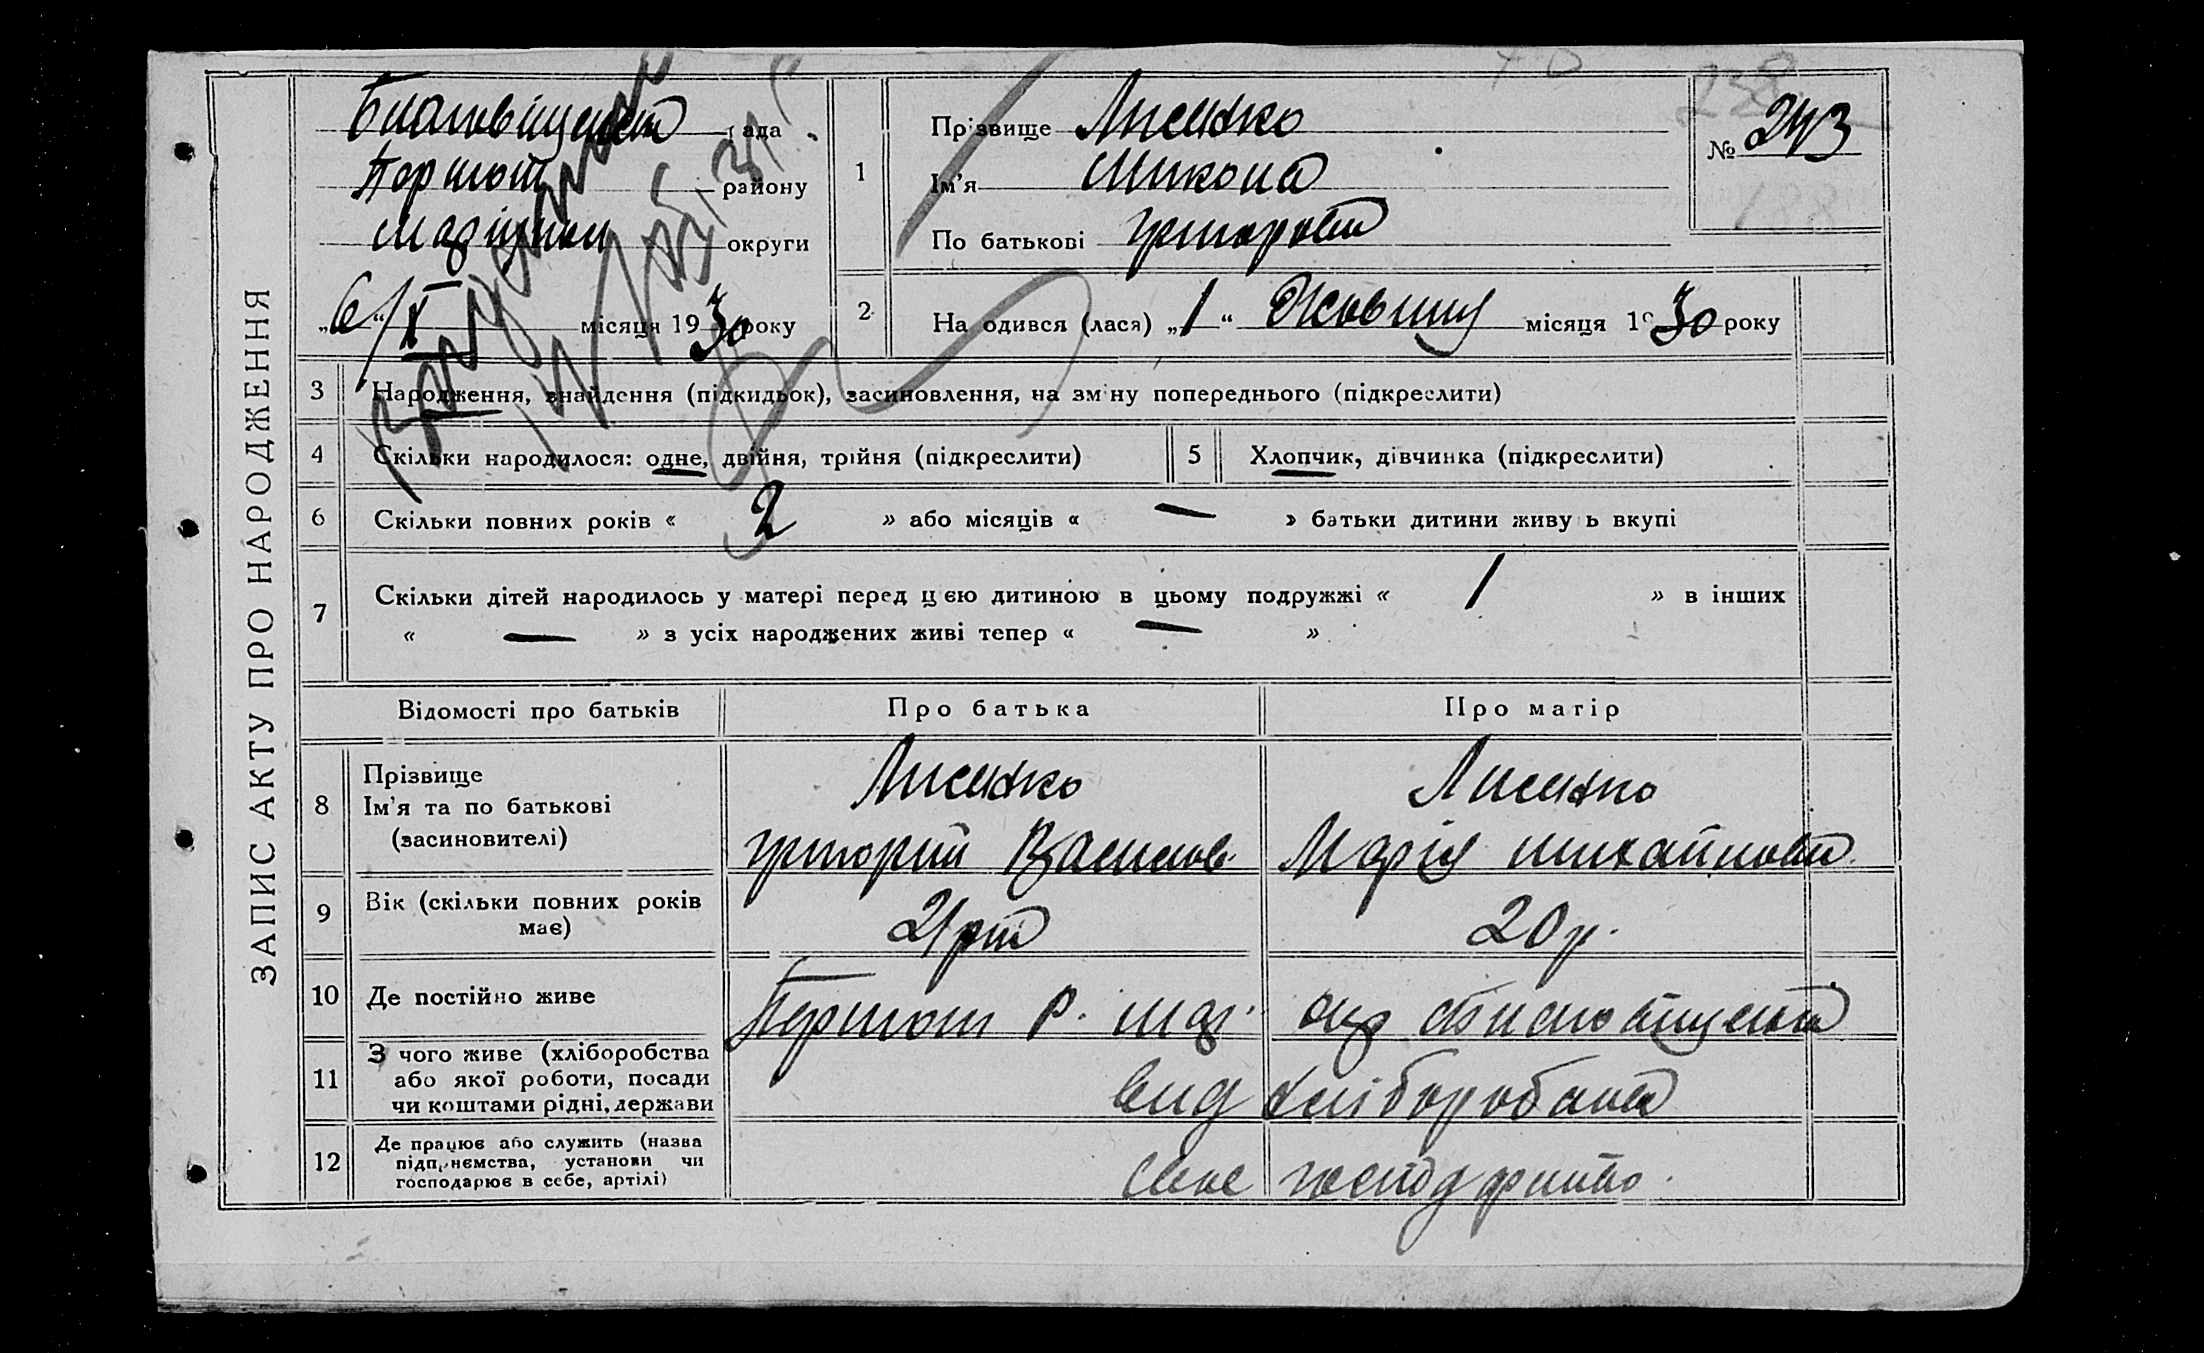 ЗАПИС АКТУ ПРО НАРОДЖЕННЯ
Благовіщенсь рада
району
округи
„6“ / X місяця 1930 року
1
Прізвище Лисенко
Ім'я Микола
По батькові Григорович
№ 243
238
2
На одився (лася) „1“ Жовтня місяця 1930 року
3 Народження, знайдення (підкидьок), засиновлення, на зміну попереднього (підкреслити)
4 Скільки народилося: одне, двійня, трійня (підкреслити)
5 Хлопчик, дівчинка (підкреслити)
6 Скільки повних років « 2 » або місяців « — » батьки дитини живу ь вкупі
7 Скільки дітей народилось у матері перед цєю дитиною в цьому подружжі « 1 » в інших
« — » з усіх народжених живі тепер « — »
Відомості про батьків Про батька Про матір
8 Прізвище
Ім'я та по батькові
(засиновителі)
Лисенко
Григорий Василов.
Лисенко
Марія Михайловн
9 Вік (скільки повних років
має)
21 рік
20 р.
10 Де постійно живе
Р. Мар. окр
11 З чого живе (хліборобства
або якої роботи, посади
чи коштами рідні, держави
вид хліборобства
12 Де працює або служить (назва
підприємства, установи чи
господарює в себе, артілі)
своє господарство.